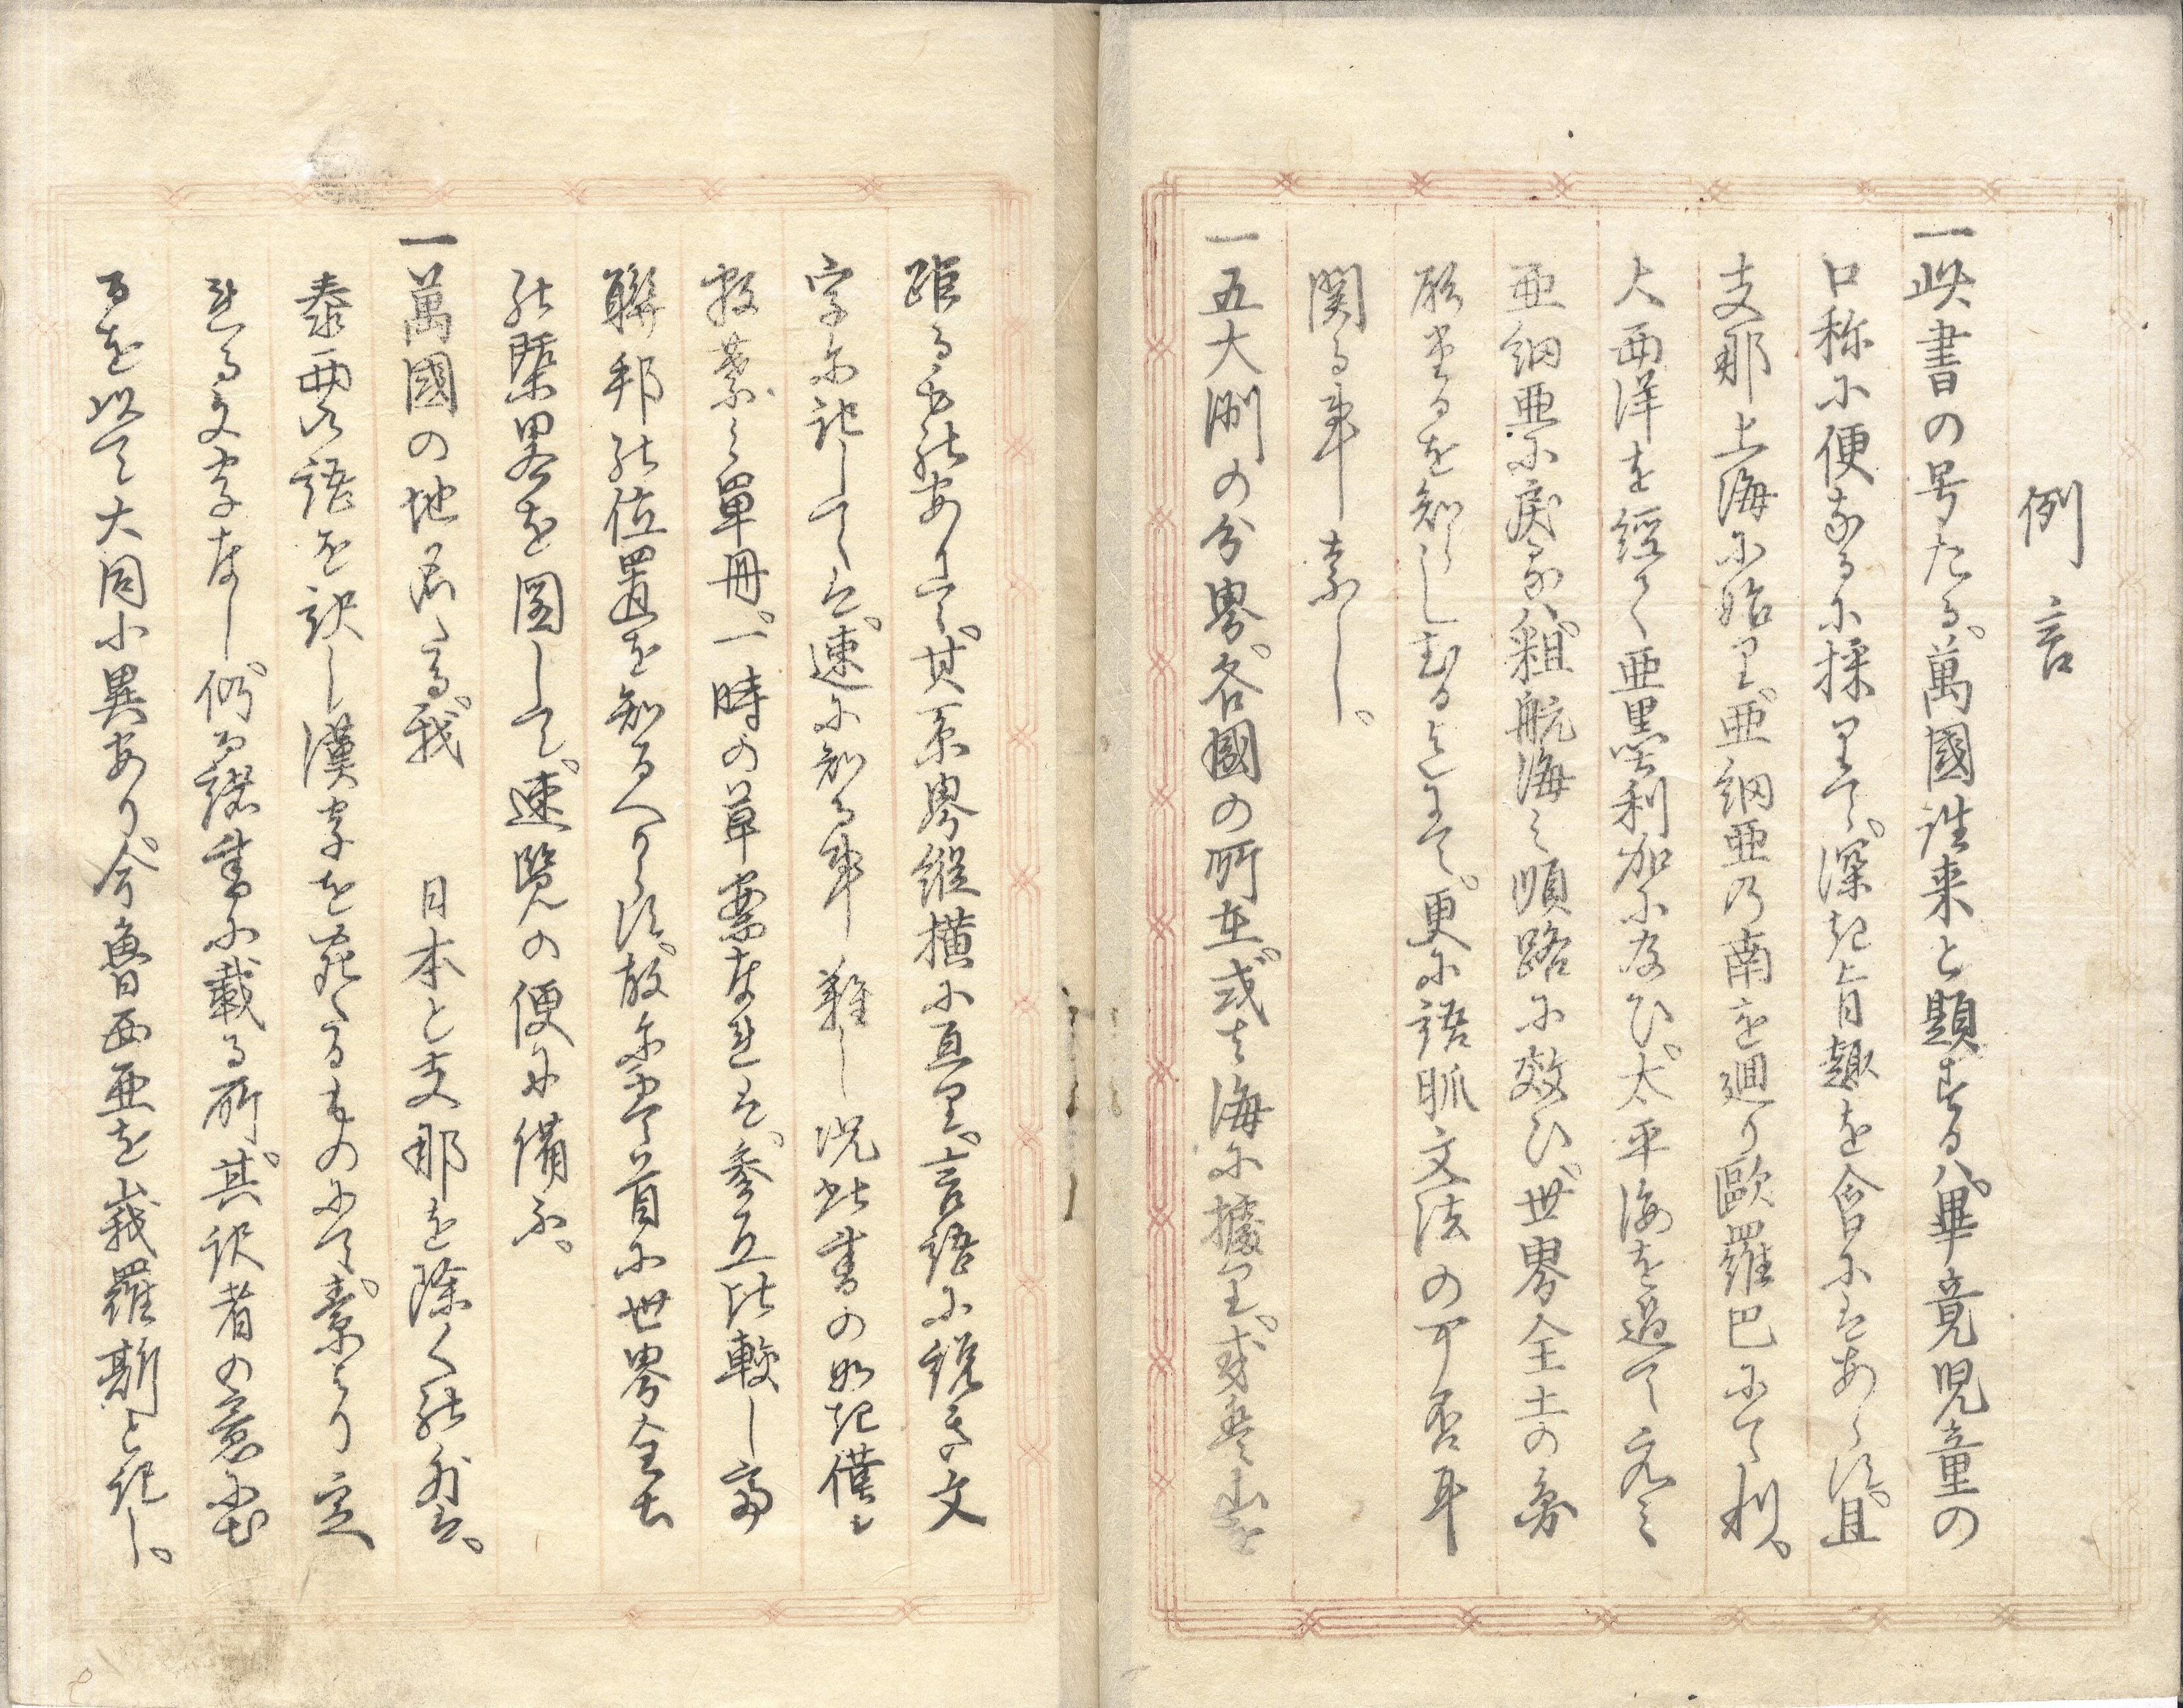 例言
一此書の号たる。萬國往来と題するハ。畢竟児童の
口称に便なるに採りて。深き旨趣を會にはあらす。且
支那上海に始り。亜細亜の南を廻り歐羅巴にて利。
大西洋を經て亜黒利加に及ひ。太平海を過て元之
亜細亜に戻るハ。粗航海之順路に效ひ。世界全土の身
形なるを知らしむる迄にて。更に語脈文法の可否耳
関る事なし。
一五大洲の分界。各國の所在。或は海に據り。或は山を
距る等能ありて。其系界縦横に亘り。言語に説き文
字に記しては。速に知る事難し况此書の如き僅々
数葉之單冊。一時の草稾なれは。参互比較し齊
聯邦の位置を知るへからす。故に巻首に世界全土
の槩畧を圖して。速覧の便に備ふ。
一萬國の地名たる。我 日本と支那を除くの外は。
泰西の語を訳し漢字を宛たるものにて。素より定
れる文字なし。仍而諸書に載る所。其訳者の意に出
るを以て大同小異あり。今魯西亜を峩羅斯と記し。